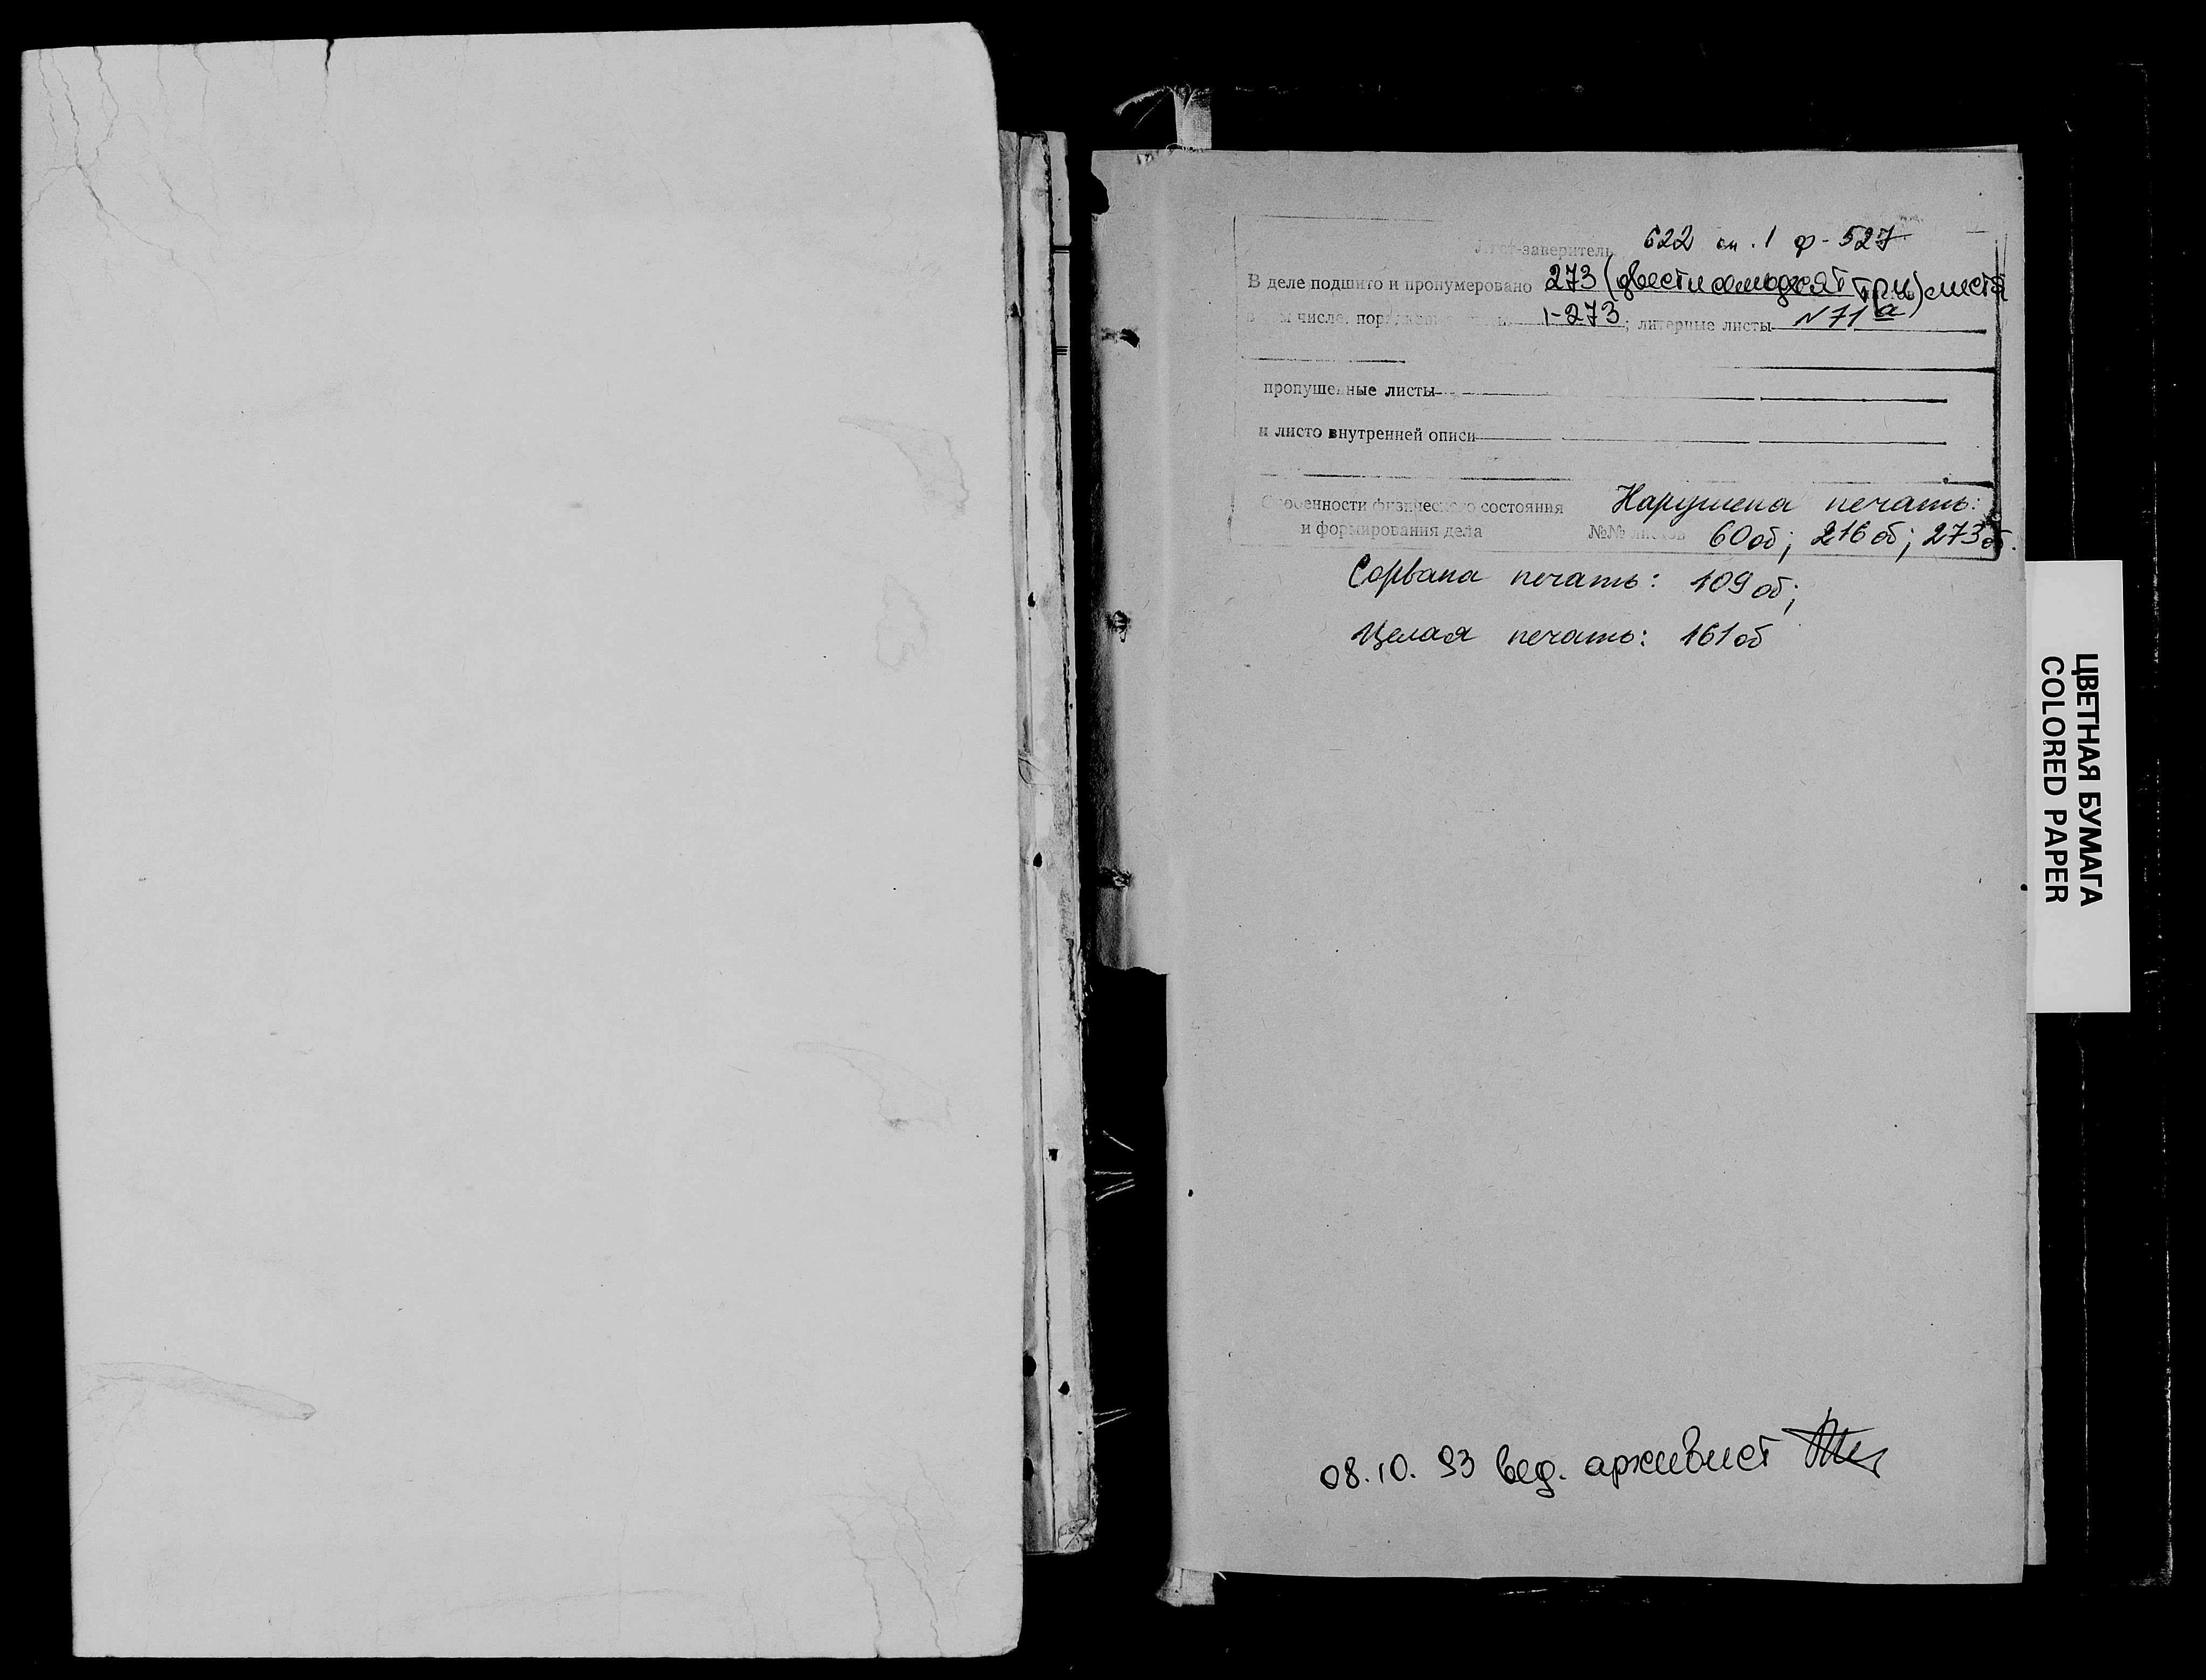 Лист-заверитель 622 оп. 1 ф-527
В деле подшито и пронумеровано 273 (двести семьдесят три) листа
в том числе, порядковые 1-273; литерные листы N 71а
пропущенные листы
и листо внутренней описи
Особенности физического состояния Нарушена печать:
и формирования дела №№ листов 60об; 216об; 273об.
Сорвана печать: 109об;
Целая печать: 161об
08.10.93 вед. архивист
ЦВЕТНАЯ БУМАГА
COLORED PAPER